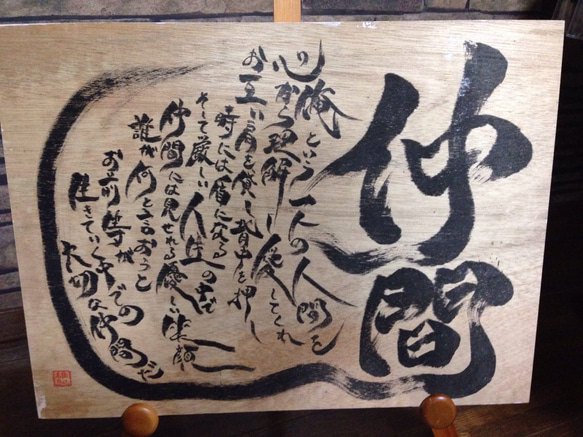 仲間
俺という一人の人間を
心から理解し愛してくれ
お互い肩を貸し背中を押し
時には盾になる
そして厳しい人生の中で
仲間には見せれる優しい笑顔
誰が何と言おうと
お前等が
生きていく中での
大切な仲間だ